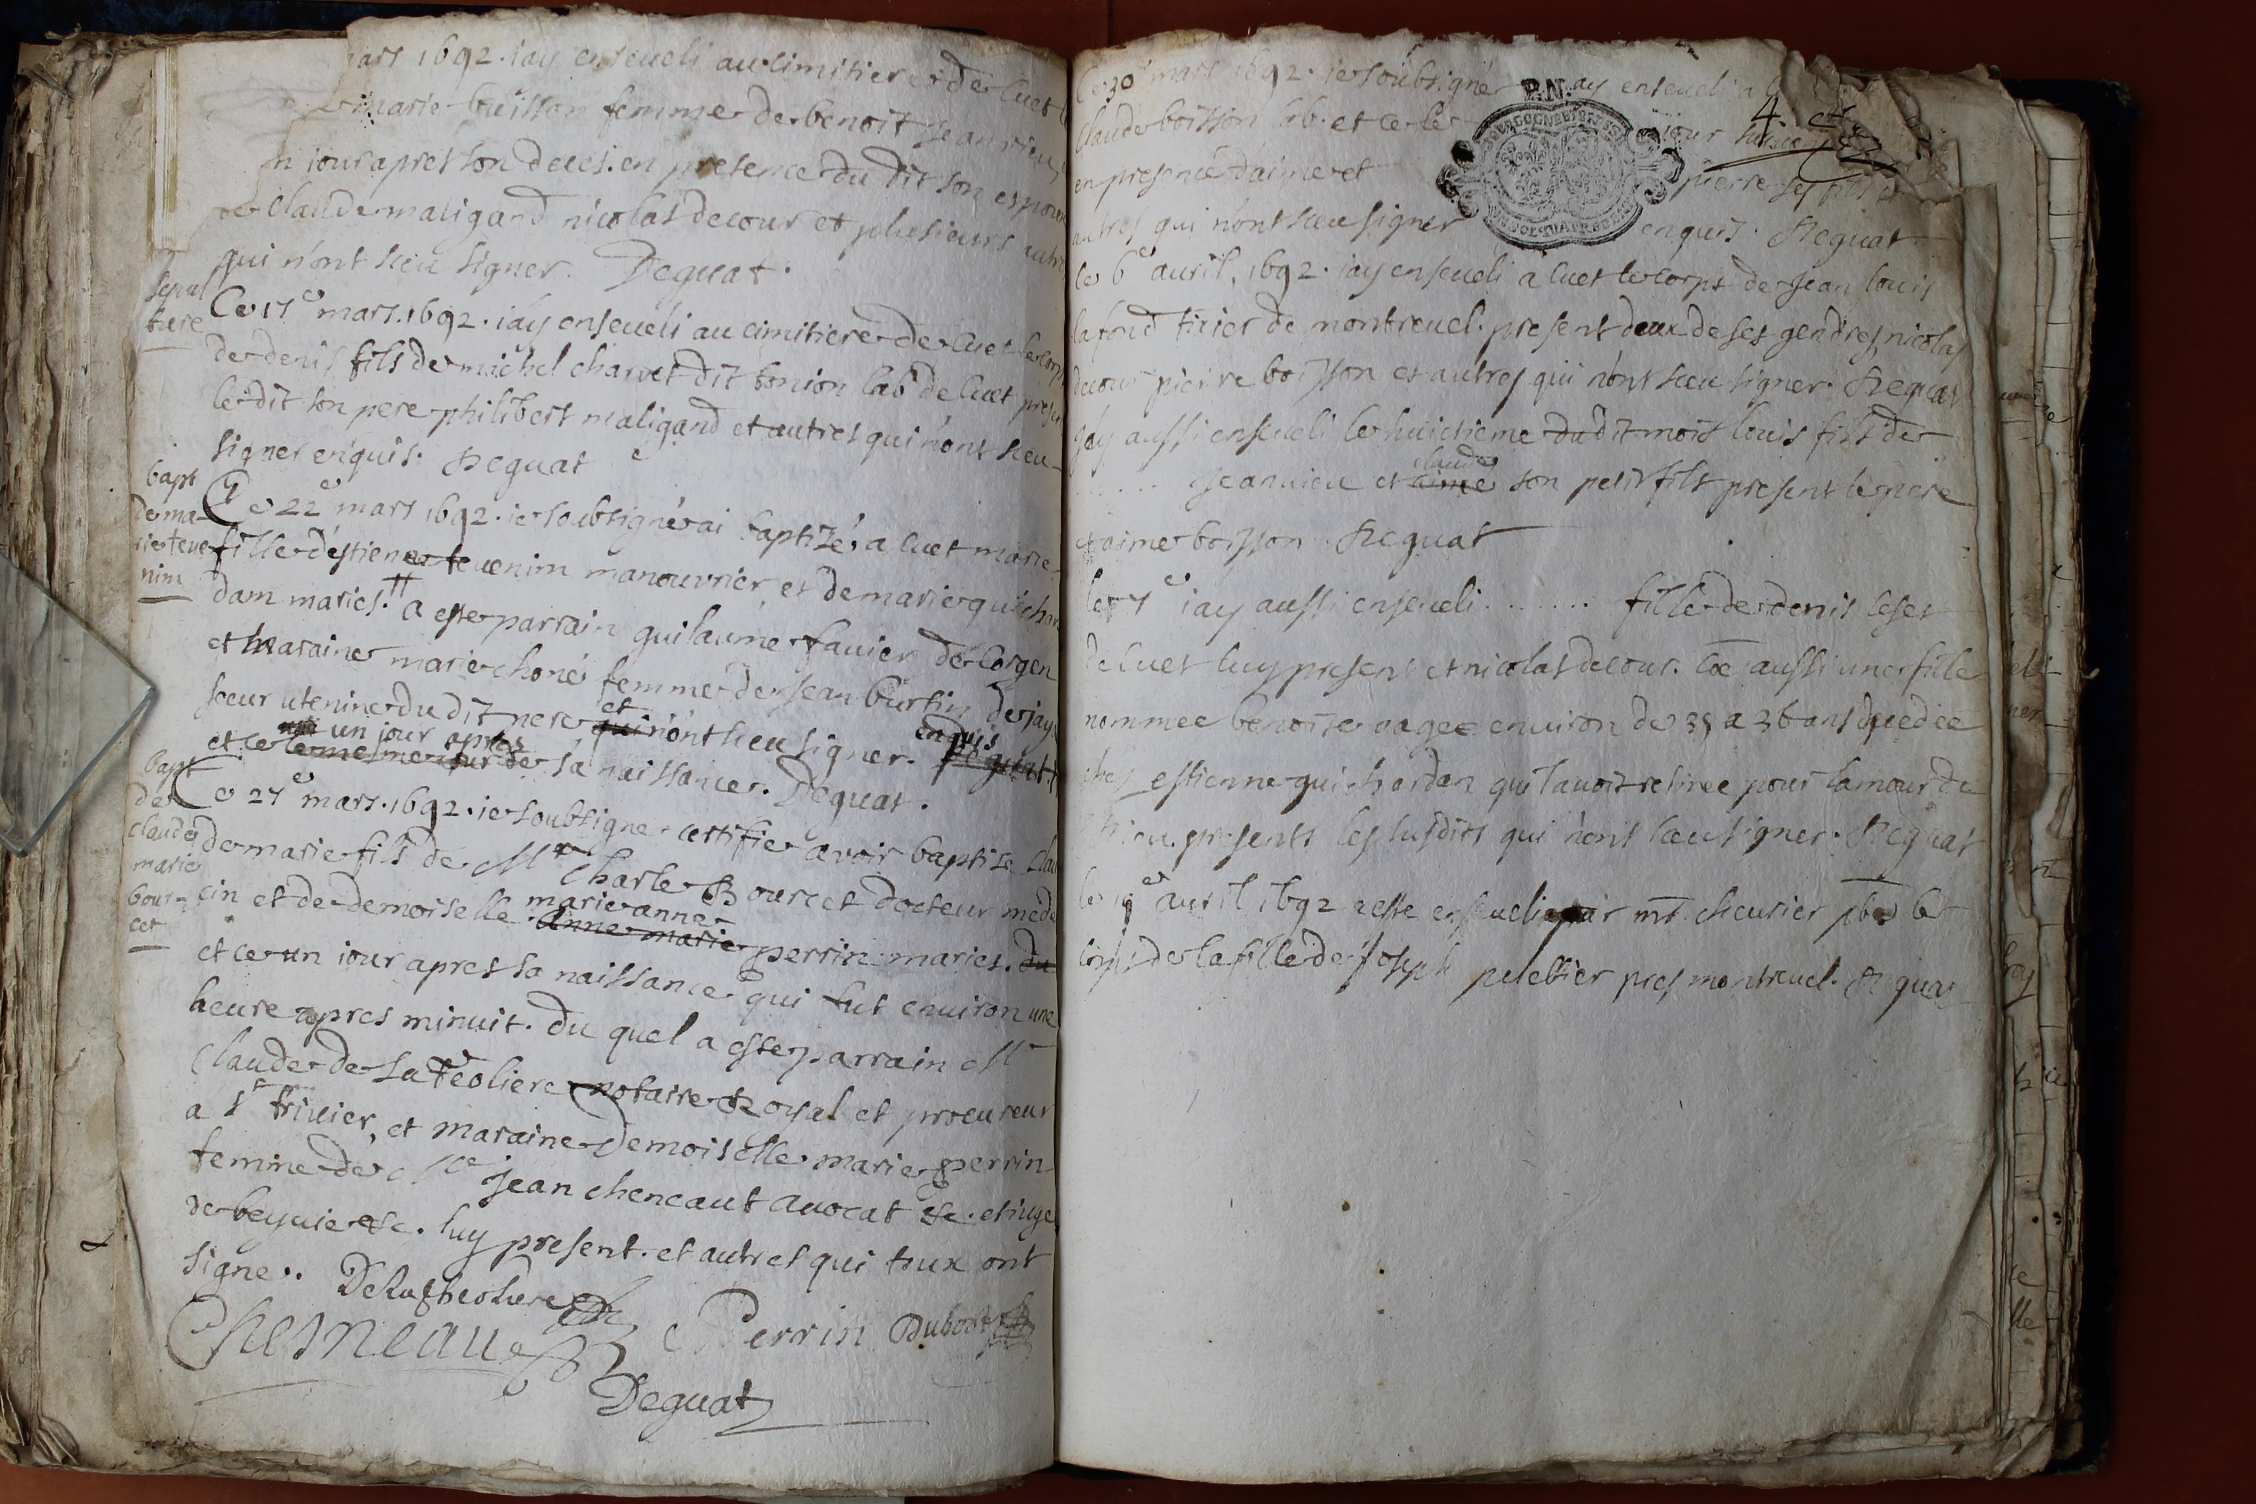 mars 1692. iay enseueli au cimitiere de Cuet
marie buisson femme de benoit Jeanvieu
n iour apres son deces. en presence du dit son espoux
de Claude maligand nicolas decour et plusieurs autres
qui n'ont sceu signer. Deguat.
sepul
ture
Ce 17e mars. 1692. iay enseueli au cimitiere de Cuet le corps
de denis fils de michel charvet dit tonion lab de Cuet present
le dit son pere philibert maligand et autres qui n'ont sceu
signer enquis. Deguat
bapt
de ma-
rie teue
nim
Ce 22e mars 1692. ie soubsigné ai baptizé a Cuet marie
fille d'estiene teuenim manouvrier, et de marie guichar
dam maries. a este parrain guilaume favier de Corgen
et maraine marie choné femme de Jean burtin de jaya
soeur uterine du dit pere et qui n'ont sceu signer. enquis Deguat
et ce un jour apres le mesme jour de sa naissance. Deguat.
bapt
de
claude
marie
bour-
cet
Ce 27e mars. 1692. ie soubsigne certifie avoir baptize Clau
de marie fils de Mr Charle Bourcet docteur mede
cin et de demoiselle marie anne anne marie perrin maries. du
et ce un iour apres sa naissance qui fut environ une
heure apres minuit. du quel a este parrain Mr
Claude de la téoliere notaire Royal et procureur
a St trivier, et maraine Demoiselle marie perrin
femme de Me Jean cheneaut avocat &c. et iuge
de beyvie &c. luy present. et autres qui tous ont
signe. Delatheoliere
Chesneau Perrin Dubost
Deguat
Ce 30e mars 1692. ie soubsigné ay enseueli a
P.N.
4.
Claude boisson lab. et ce le iour
en presence d'aime et pierre ses fils
autres qui n'ont sceu signer enquis. Deguat
le 6e auril, 1692. iay enseueli a Cuet le corps de Jean louis
lafond tixier de montreuel. present deux de ses gendres nicolas
decour pierre boisson et autres qui n'ont sceu signer. Deguat
Jay aussi enseueli le huictieme du dit mois louis fils de
...... Jeanvieu et claude aime son petit fils present le pere
et aime boisson. Deguat
le 7e iay aussi enseueli ....... fille de denis
de Cuet luy present et nicolas decour. aussi une fille
nommee benoite aagee environ de 35 a 36 ans decedee
chez estienne guichardan qui l'avoit retiree pour l'amour de
Dieu. presents les susdits qui n'ont sceu signer. Deguat
le auril 1692 a este enseueli par mr. cheurier le
corps de la fille de Joseph peletier pres montreuel. Deguat